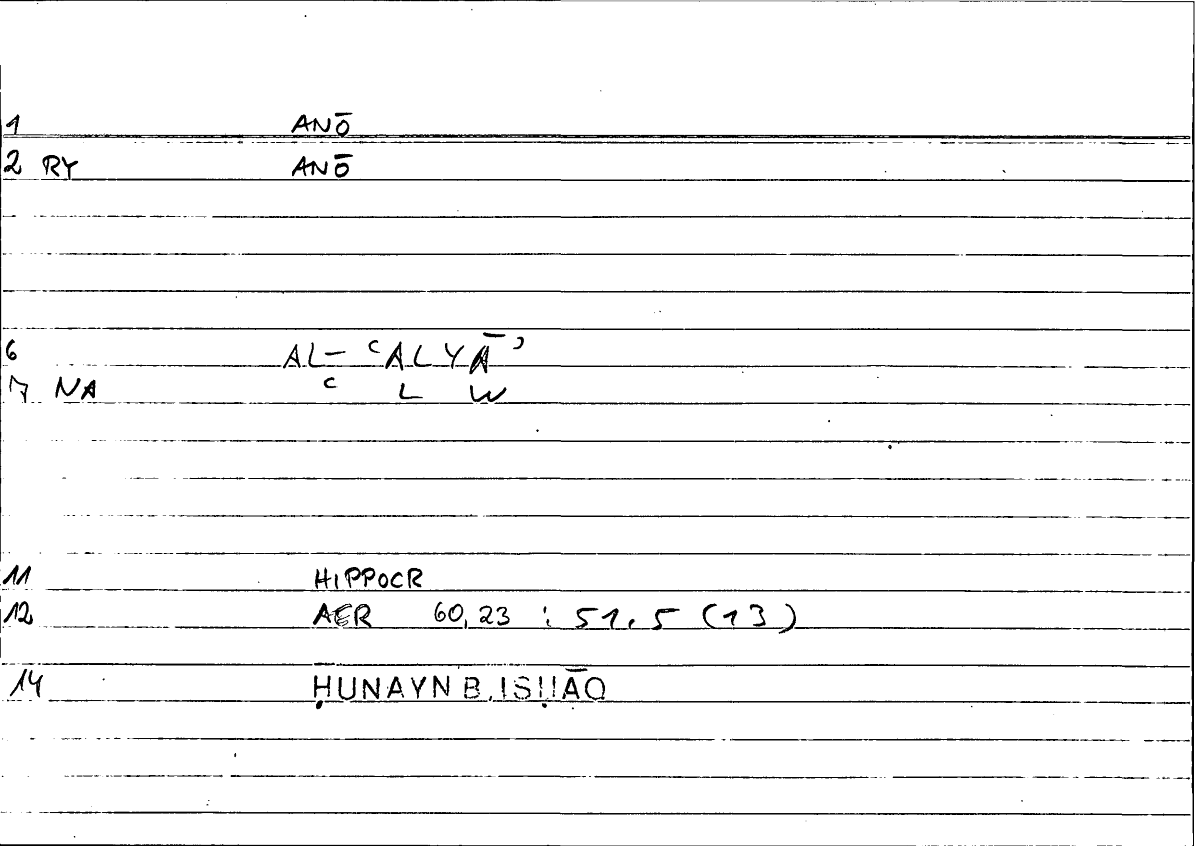 1 ANŌ
2 RY ANŌ
6 AL- ʿALYĀʾ
7 NA ʿ L W
11 HIPPOCR
12 AER 60,23 : 51.5 (13)
14 ḤUNAYN B. ISḤĀQ